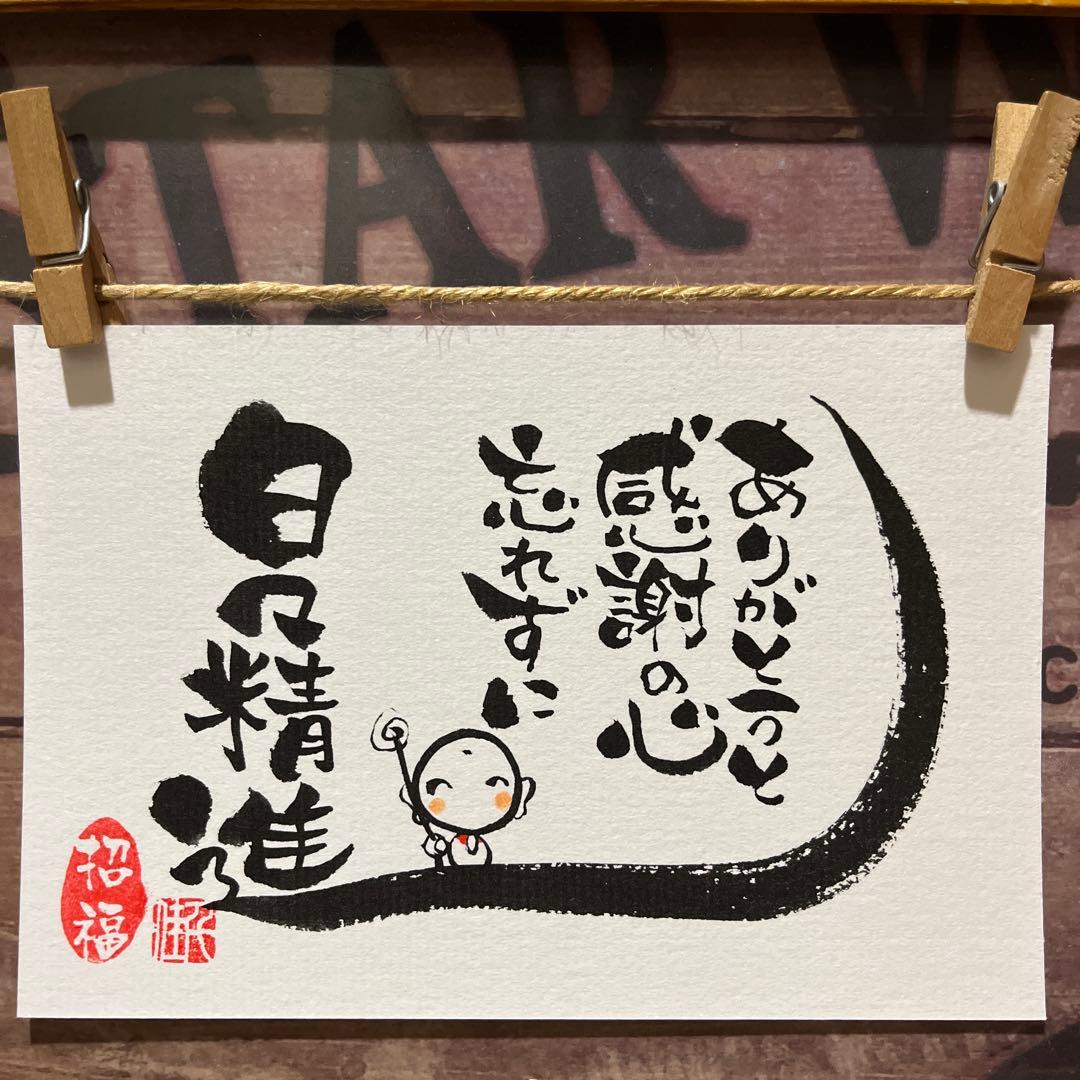 ありがとうと
感謝の心
忘れずに
日々精進
招福
TAR W